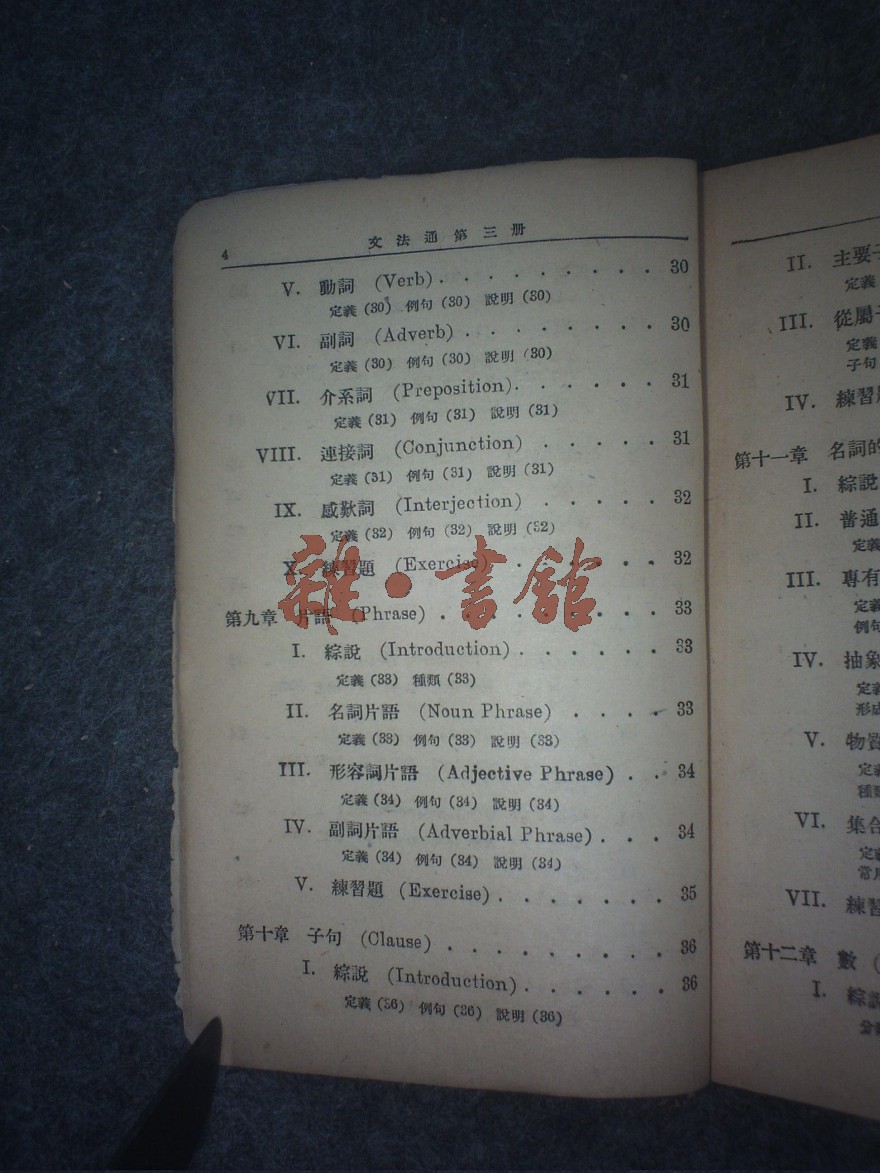 4 文法通第三册
V. 動詞 (Verb) . . . . . . . . . 30
定義 (30) 例句 (30) 說明 (30)
VI. 副詞 (Adverb) . . . . . . . . 30
定義 (30) 例句 (30) 說明 (30)
VII. 介系詞 (Preposition) . . . . . . 31
定義 (31) 例句 (31) 說明 (31)
VIII. 連接詞 (Conjunction) . . . . . 31
定義 (31) 例句 (31) 說明 (31)
IX. 感歎詞 (Interjection) . . . . . 32
定義 (32) 例句 (32) 說明 (32)
X. 練習題 (Exercise) . . . . . . 32
第九章 片語 (Phrase) . . . . . . . . 33
I. 綜說 (Introduction) . . . . . . 33
定義 (33) 種類 (33)
II. 名詞片語 (Noun Phrase) . . . . 33
定義 (33) 例句 (33) 說明 (33)
III. 形容詞片語 (Adjective Phrase) . . 34
定義 (34) 例句 (34) 說明 (34)
IV. 副詞片語 (Adverbial Phrase) . . . 34
定義 (34) 例句 (34) 說明 (34)
V. 練習題 (Exercise) . . . . . . . 35
第十章 子句 (Clause) . . . . . . . . 36
I. 綜說 (Introduction) . . . . . . 36
定義 (36) 例句 (36) 說明 (36)
雜·書館
II. 主要子
定義
III. 從屬子
定義
子句
IV. 練習題
第十一章 名詞的
I. 綜說
II. 普通
定義
III. 專有
定義
例句
IV. 抽象
定義
形成
V. 物質
定義
種類
VI. 集合
定義
常用
VII. 練習
第十二章 數 (
I. 綜說